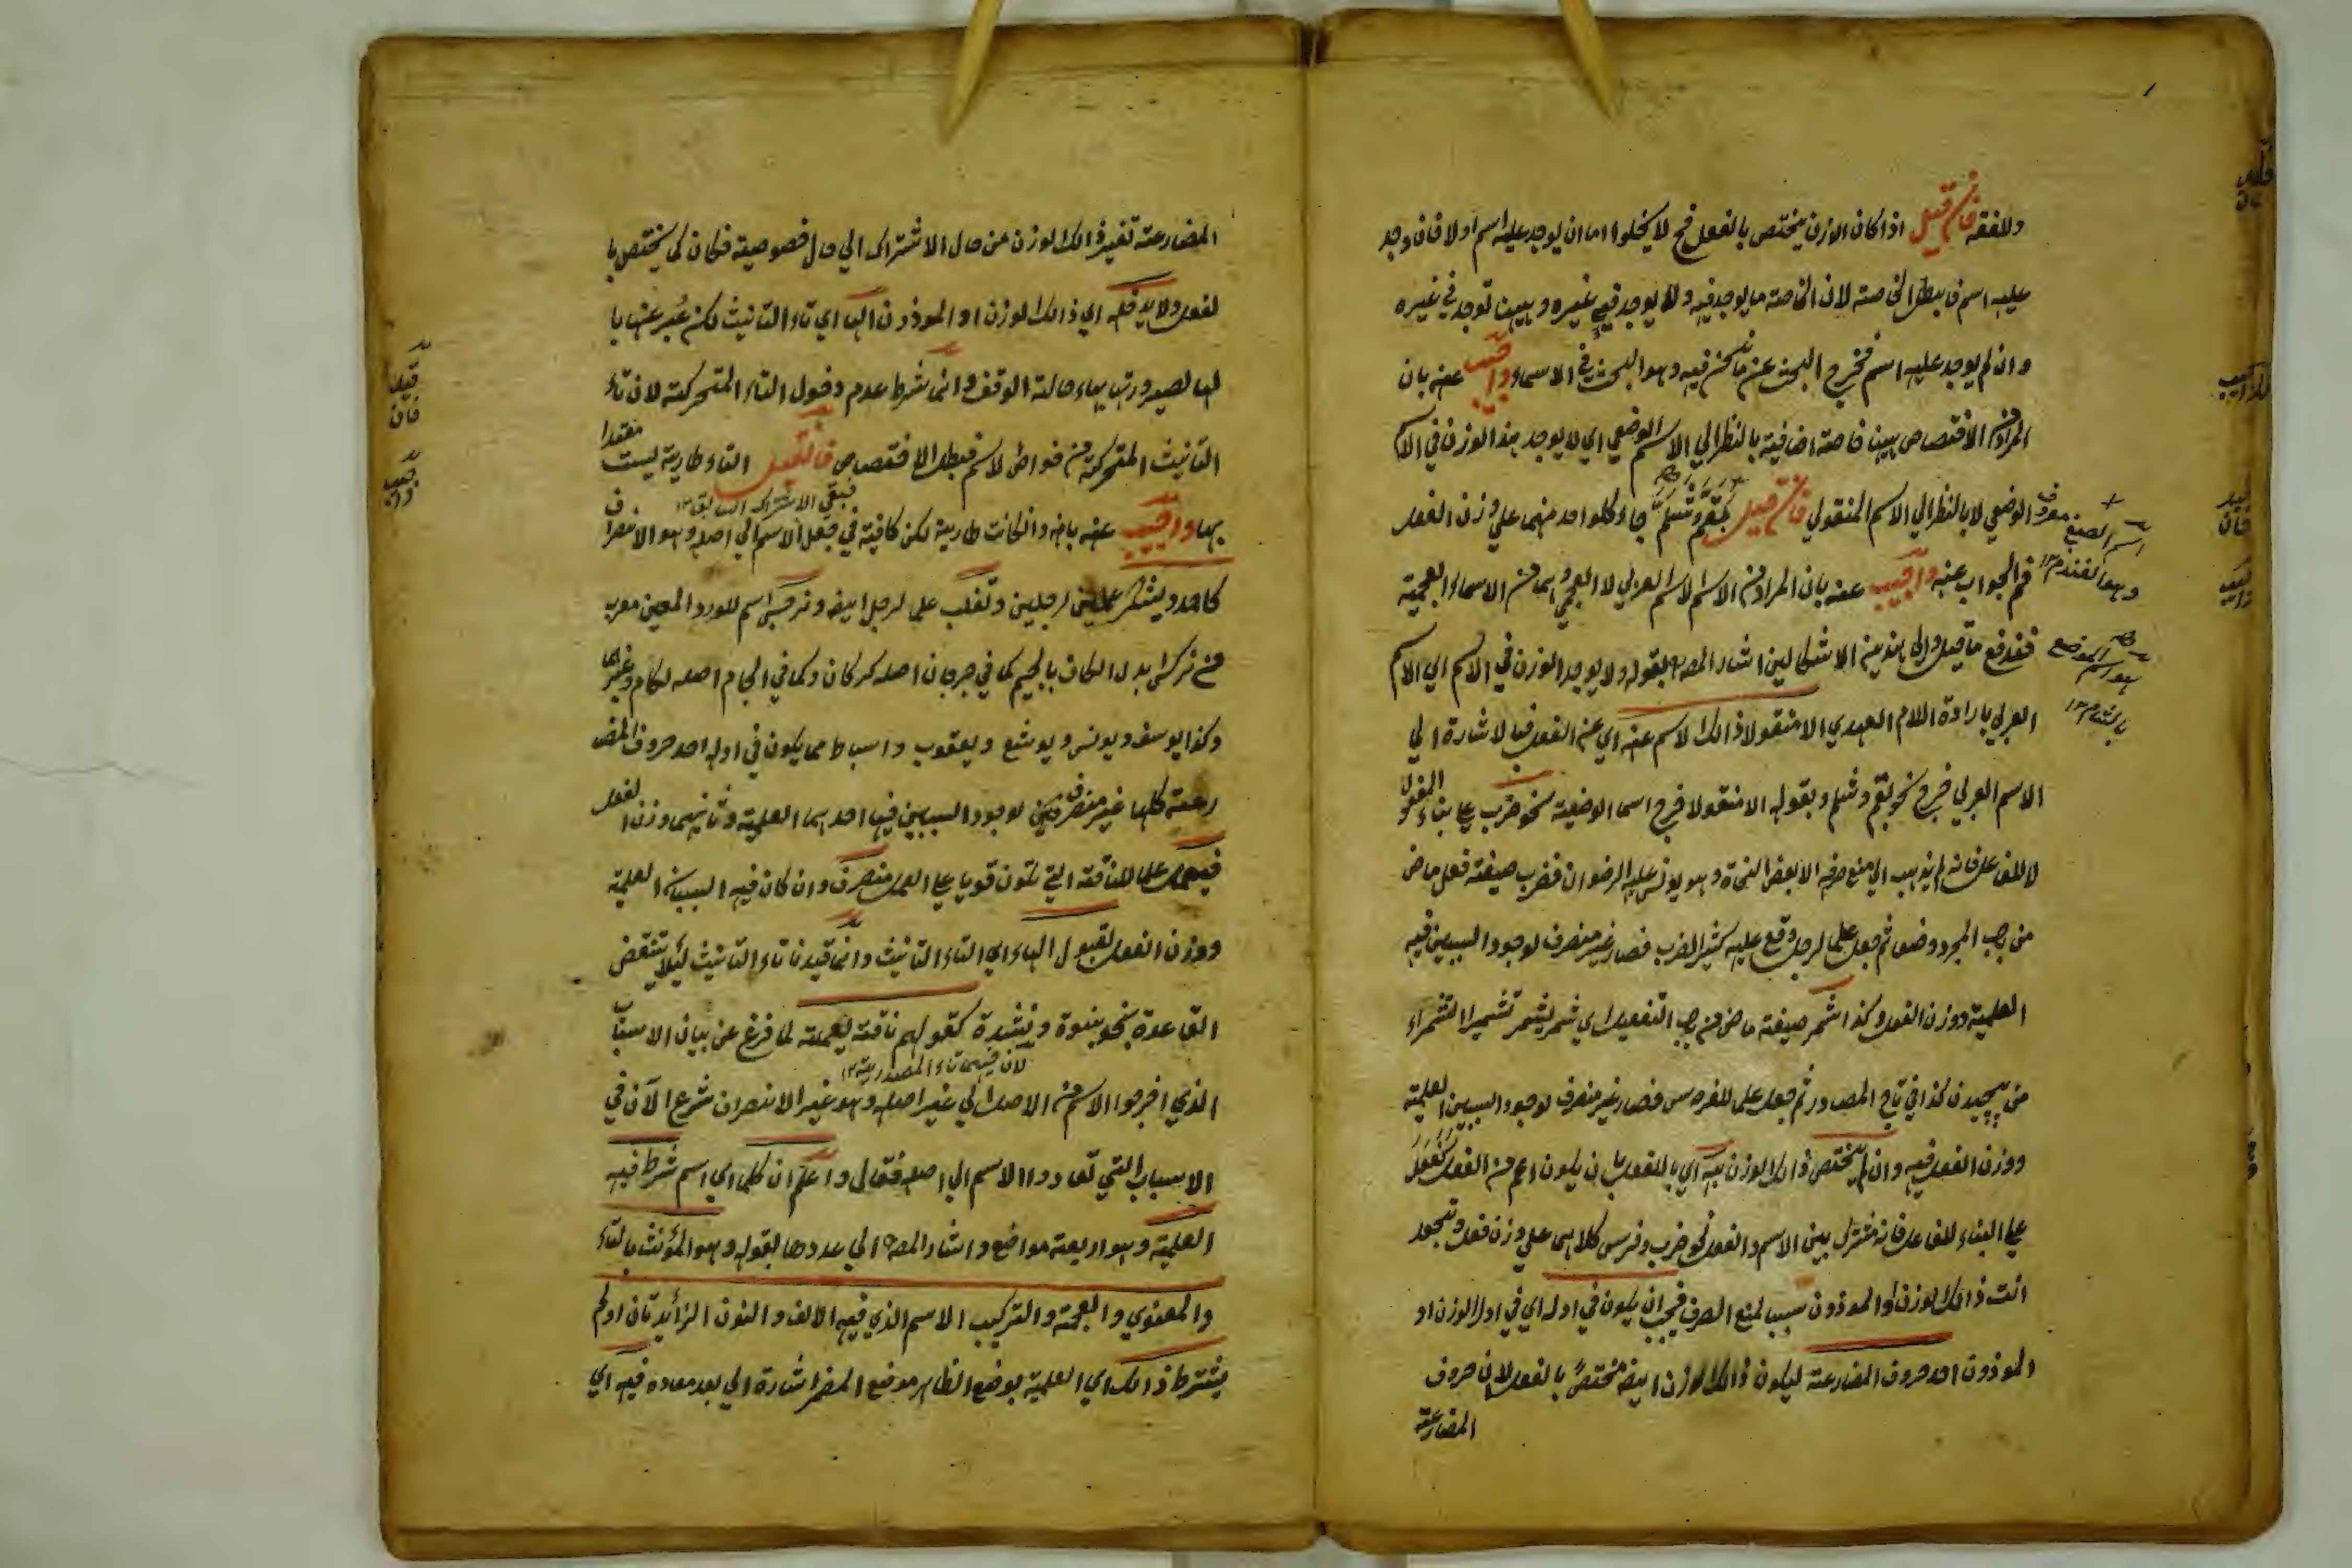 وللفقه فان قيل اذا كان الوزن يختص بالفعل فح لا يخلوا اما ان يوجد عليه اسم او لا فان وجد
عليه اسم فابطل الخاصة لان الخاصة ما يوجد فيه ولا يوجد في غيره وههنا توجد في غيره
وان لم يوجد عليه اسم فخرج البحث عن ما نحن فيه وهو البحث في الاسماء واجيب عنه بان
المراد من الاختصاص ههنا خاصة اضافية بالنظر الي الاسم الوضعي اي لا يوجد هذا الوزن في الاسم
الوضعي لا بالنظر الي الاسم المنقولي فان قيل بقم وشلم جاء كلواحد منهما علي وزن الفعل
فم الجواب عنه واجيب عنه بان المراد من الاسم الاسم العربي لا العجمي وهما من الاسماء العجمية
فقد فع ما قيل والي هذين الاشكالين اشار المصـ بقوله ولا يوجد الوزن في الاسم اي الاسم
العربي بارادة اللام العهدي الا منقولا ذالك الاسم عنه اي عن الفعل فبالاشارة الي
الاسم العربي خرج نحو بقم وشلم وبقوله الا منقولا خرج اسما الوضعية نحو ضرب علي بناء المفعول
لا للفاعل فانه لم يذهب الي منع صرفه الا بعض النحاة وهو يونس عليه الرضوان فضرب صيغة فعل ماض
من ضرب المجرد وضعا ثم جعل علما لرجل وقع عليه كثير الضرب فصار غير منصرف لوجود السببين فيه
العلمية ووزن الفعل وكذا شمر صيغة ماض من باب التفعيل اي شمر يشمر تشميرا لتشمراء
من پيچيدن كذا في تاج المصادر ثم جعل علما للفرس فصار غير منصرف لوجود السببين العلمية
ووزن الفعل فيه وان لم يختص ذالك الوزن به اي بالفعل بان يكون اعم من الفعل كفعل
علي البناء للفاعل فانه مشترك بين الاسم والفعل نحو ضرب وفرس كلاهما علي وزن فعل وتجعد
انت ذالك الوزن او الموزون سببا لمنع الصرف فيجب ان يكون في اوله اي في اول الوزن او
الموزون احد حروف المضارعة ليكون ذالك الوزن ايضه مختصا بالفعل لان حروف
المضارعة
اسم الصبغ معروف
وهو الفندم ١٢
هو اسم الموضع
بالشام ١٢
المضارعة تغير ذالك الوزن من حال الاشتراك الي حال خصوصية فكان كما يختص با
لفعل ولا يدخله اي ذالك الوزن او الموزون الها اي تاء التانيث لكن عبر عنها با
لها لصيرورتها بهاء حالة الوقف وانما شرط عدم دخول التاء المتحركة لان تاء
التانيث المتحركة من خواص الاسم فبطل الاختصاص فان قيل التاء طارية ليست معتدا
فبقي الاشتراك السابق ١٢
بها واجيب عنه بانه وان كانت طارية لكن كافية في جعل الاسم الي اصله وهو الانصراف
كاحمد ويشكر علمين لرجلين وتغلب علم لرجل ايضه ونرجس اسم للورد المعين معرب
من نركس بدل الكاف بالجيم كما في جرجان اصله كركان وكما في لجام اصله لكام وغيرهما
وكذا يوسف ويونس ويوشع ويعقوب واسباط مما يكون في اوله احد حروف المضا
رعة كلها غير منصرفين لوجود السببين فيها احدهما العلمية وثانيهما وزن الفعل
فيعمل علما للناقة التي تكون قويا علي العمل منصرف وان كان فيه السببان العلمية
ووزن الفعل لقبول الهاء اي التاء التانيث وانما قيدنا تاء التانيث لئلا تنتقض
القاعدة بنحو بنوة ونشدة كقولهم ناقة يعملة لما فرغ عن بيان الاسباب
لان فيهما تاء المصدرية ١٢
الذي اخرجوا الاسم من الاصل الي غير اصله وهو غير الانصراف شرع الآن في
الاسباب التي تعاودوا الاسم الي اصله فقال واعلم ان كلما اي اسم شرط فيه
العلمية وهو اربعة مواضع واشار المصـ الي عددها بقوله وهو المؤنث بالتاء
والمعنوي والعجمة والتركيب الاسم الذي فيه الالف والنون الزائدتان او لم
يشترط ذالك اي العلمية بوضع الظاهر موضع المضمر اشارة الي بعد معاده فيه اي
قيل
فان
جيب
وا